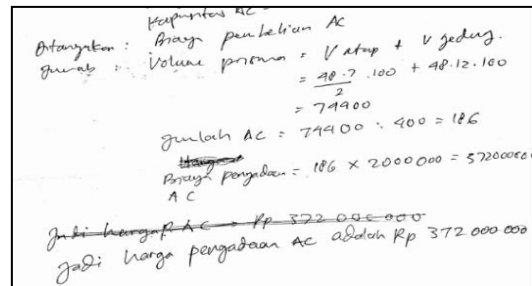 Kapasitas AC =
Ditanyakan : Biaya pembelian AC
Jawab : Volume prisma = V atap + V gedung.
= 48.7.100 / 2 + 48.12.100
= 74400
Jumlah AC = 74400 : 400 = 186
Harga
Biaya pengadaan = 186 × 2000000 = 37200000
AC
Jadi harga AC = Rp 372 000 000
Jadi harga pengadaan AC adalah Rp 372 000 000